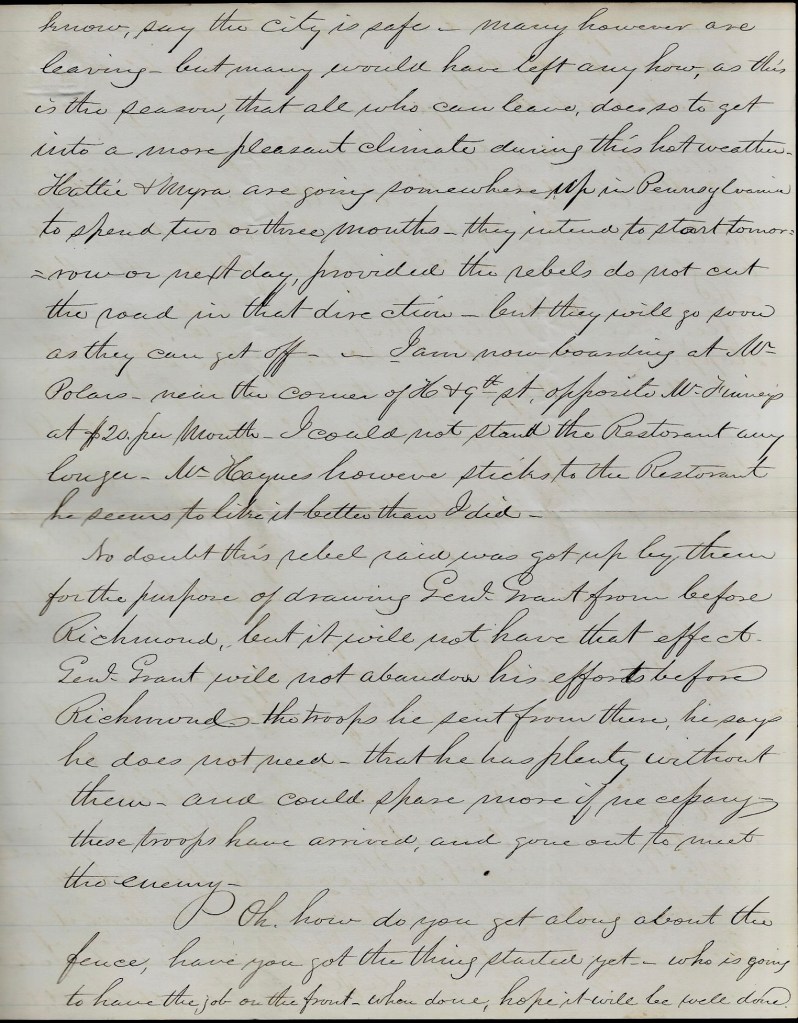 know, say the city is safe - many however are
leaving - but many would have left any how, as this
is the season, that all who can leave, does so to get
into a more pleasant climate during this hot weather -
Hattie & Myra are going somewhere up in Pennsylvania
to spend two or three months - they intend to start tomor=
=row or next day, provided the rebels do not cut
the road in that direction - but they will go soon
as they can get off - - I am now boarding at Mr
Polars - near the corner of H & 9th st, opposite Mr Finneys
at $20. per month - I could not stand the Restorant any
longer - Mr Haynes howeve sticks to the Restorant
he seems to like it better than I did -
No doubt this rebel raid was got up by them
for the purpose of drawing Genl. Grant from before
Richmond, but it will not have that effect -
Genl. Grant will not abandon his efforts before
Richmond - the troops he sent from there, he says
he does not need - that he has plenty without
them - and could spare more if necessary -
these troops have arrived, and gone out to meet
the enemy -
Oh. how do you get along about the
fence, have you got the thing started yet - who is going
to have the job on the front - when done, hope it will be well done.